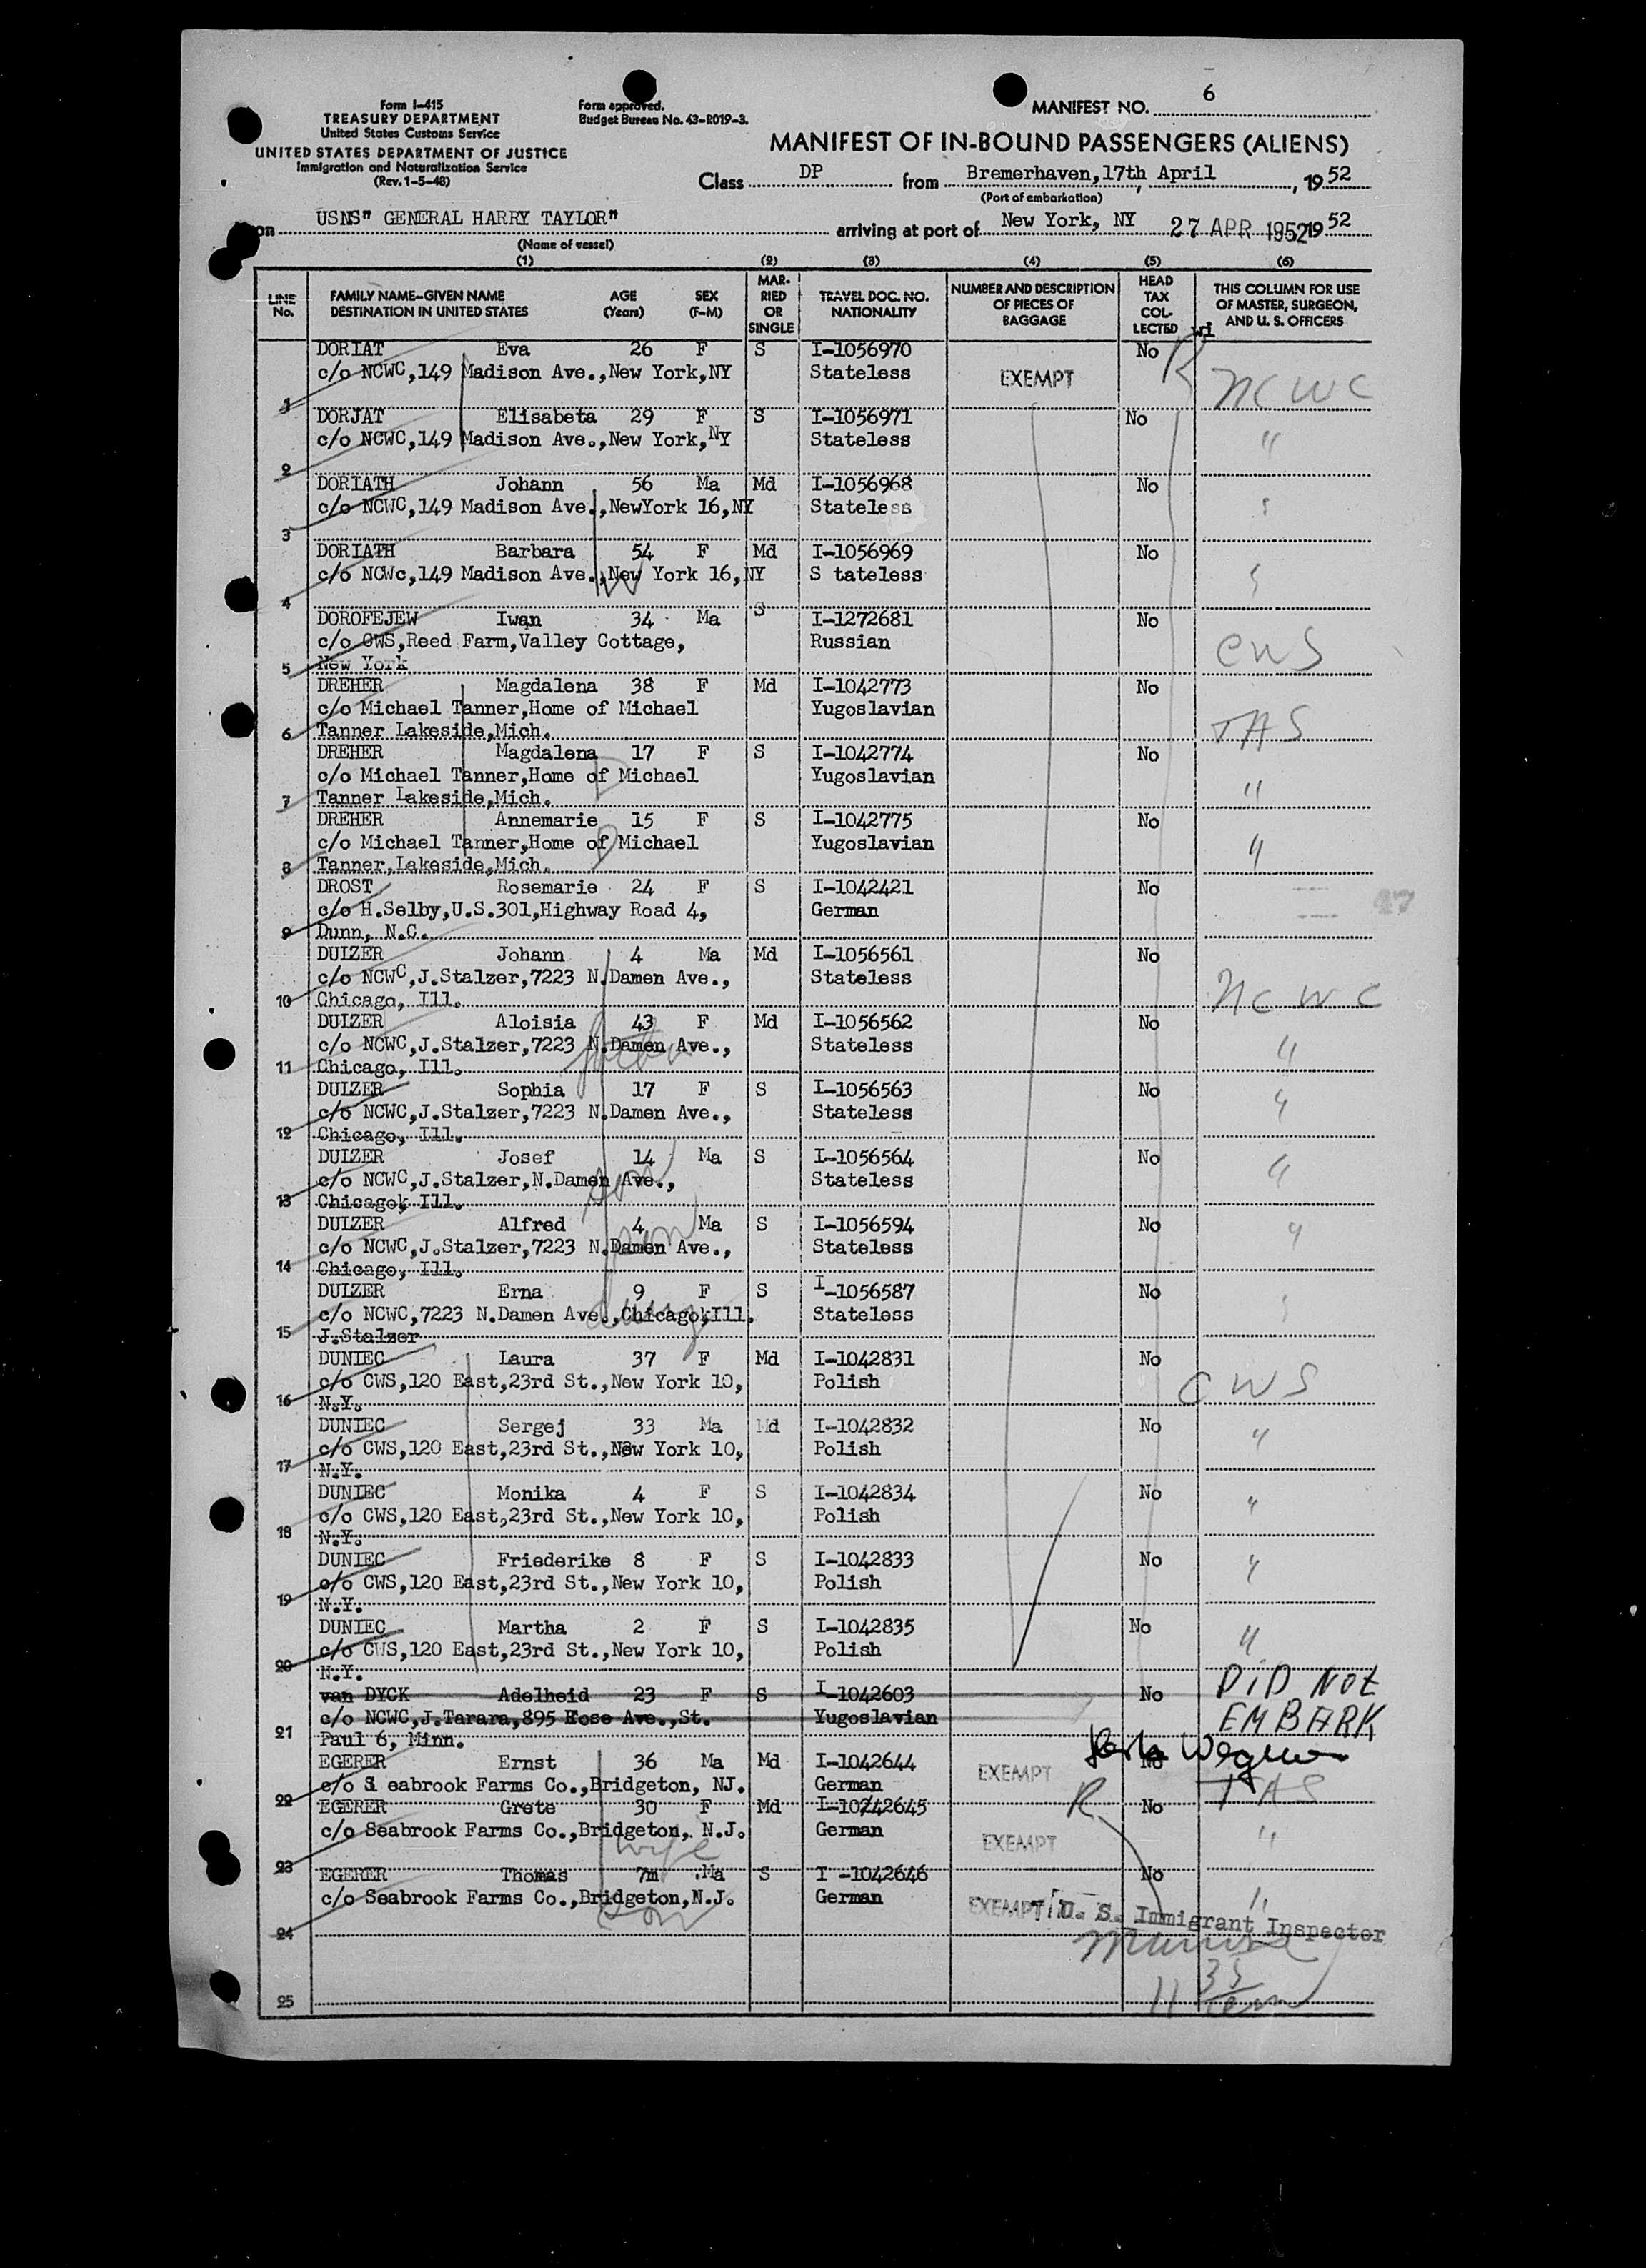 Form I-415
TREASURY DEPARTMENT
United States Customs Service
UNITED STATES DEPARTMENT OF JUSTICE
Immigration and Naturalization Service
(Rev. 1-5-48)
Form approved.
Budget Bureau No. 43-R019-3.
MANIFEST NO. 6
MANIFEST OF IN-BOUND PASSENGERS (ALIENS)
Class DP from Bremerhaven, 17th April, 1952
(Port of embarkation)
on USNS" GENERAL HARRY TAYLOR" arriving at port of New York, NY 27 APR 1952 1952
(Name of vessel)
(1) (2) (3) (4) (5) (6)
LINE No. FAMILY NAME-GIVEN NAME DESTINATION IN UNITED STATES AGE (Years) SEX (F-M) MARRIED OR SINGLE TRAVEL DOC. NO. NATIONALITY NUMBER AND DESCRIPTION OF PIECES OF BAGGAGE HEAD TAX COLLECTED THIS COLUMN FOR USE OF MASTER, SURGEON, AND U. S. OFFICERS
wi
DORIAT Eva 26 F S I-1056970 No
c/o NCWC,149 Madison Ave.,New York,NY Stateless EXEMPT NCWC
1
DORJAT Elisabeta 29 F S I-1056971 No
c/o NCWC,149 Madison Ave.,New York,NY Stateless "
2
DORIATH Johann 56 Ma Md I-1056968 No
c/o NCWC,149 Madison Ave.,NewYork 16,NY Stateless "
3
DORIATH Barbara 54 F Md I-1056969 No
c/o NCWc,149 Madison Ave.,New York 16,NY S tateless "
W
4
DOROFEJEW Iwan 34 Ma S I-1272681 No
c/o CWS,Reed Farm,Valley Cottage, Russian CWS
5 New York
DREHER Magdalena 38 F Md I-1042773 No
c/o Michael Tanner,Home of Michael Yugoslavian TAS
6 Tanner Lakeside,Mich.
DREHER Magdalena 17 F S I-1042774 No
c/o Michael Tanner,Home of Michael Yugoslavian "
D
7 Tanner Lakeside,Mich.
DREHER Annemarie 15 F S I-1042775 No
c/o Michael Tanner,Home of Michael Yugoslavian "
D
8 Tanner,Lakeside,Mich.
DROST Rosemarie 24 F S I-1042421 No 47
c/o H.Selby,U.S.301,Highway Road 4, German
9 Dunn, N.C.
DUIZER Johann 4 Ma Md I-1056561 No
c/o NCWC,J.Stalzer,7223 N.Damen Ave., Stateless NCWC
10 Chicago, Ill.
DUIZER Aloisia 43 F Md I-1056562 No
c/o NCWC,J.Stalzer,7223 N.Damen Ave., Stateless "
11 Chicago, Ill.
DUIZER Sophia 17 F S I-1056563 No
c/o NCWC,J.Stalzer,7223 N.Damen Ave., Stateless "
12 Chicago, Ill.
DUIZER Josef 14 Ma S I-1056564 No
c/o NCWC,J.Stalzer,N.Damen Ave., Stateless "
son
13 Chicagok Ill.
DUIZER Alfred 4 Ma S I-1056594 No
c/o NCWC,J.Stalzer,7223 N.Damen Ave., Stateless "
son
14 Chicago, Ill.
DUIZER Erna 9 F S I-1056587 No
c/o NCWC,7223 N.Damen Ave.,Chicago,Ill. Stateless "
daug
15 J.Stalzer
DUNIEC Laura 37 F Md I-1042831 No
c/o CWS,120 East,23rd St.,New York 10, Polish CWS
16 N.Y.
DUNIEC Sergej 33 Ma Md I-1042832 No
c/o CWS,120 East,23rd St.,New York 10, Polish "
17 N.Y.
DUNIEC Monika 4 F S I-1042834 No
c/o CWS,120 East,23rd St.,New York 10, Polish "
18 N.Y.
DUNIEC Friederike 8 F S I-1042833 No
c/o CWS,120 East,23rd St.,New York 10, Polish "
19 N.Y.
DUNIEC Martha 2 F S I-1042835 No
c/o CWS,120 East,23rd St.,New York 10, Polish "
20 N.Y.
van DYCK Adelheid 23 F S I-1042603 No DiD Not
c/o NCWC,J.Tarara,895 Rose Ave.,St. Yugoslavian EMBARK
21 Paul 6, Minn.
EGERER Ernst 36 Ma Md I-1042644 EXEMPT No
c/o S eabrook Farms Co.,Bridgeton, NJ. German TAS
22
EGERER Grete 30 F Md I-10242645 R No
c/o Seabrook Farms Co.,Bridgeton, N.J. German EXEMPT "
wife
23
EGERER Thomas 7m Ma S I -1042646 No
c/o Seabrook Farms Co.,Bridgeton,N.J. German EXEMPT "
son
U. S. Immigrant Inspector
24
11 35
25